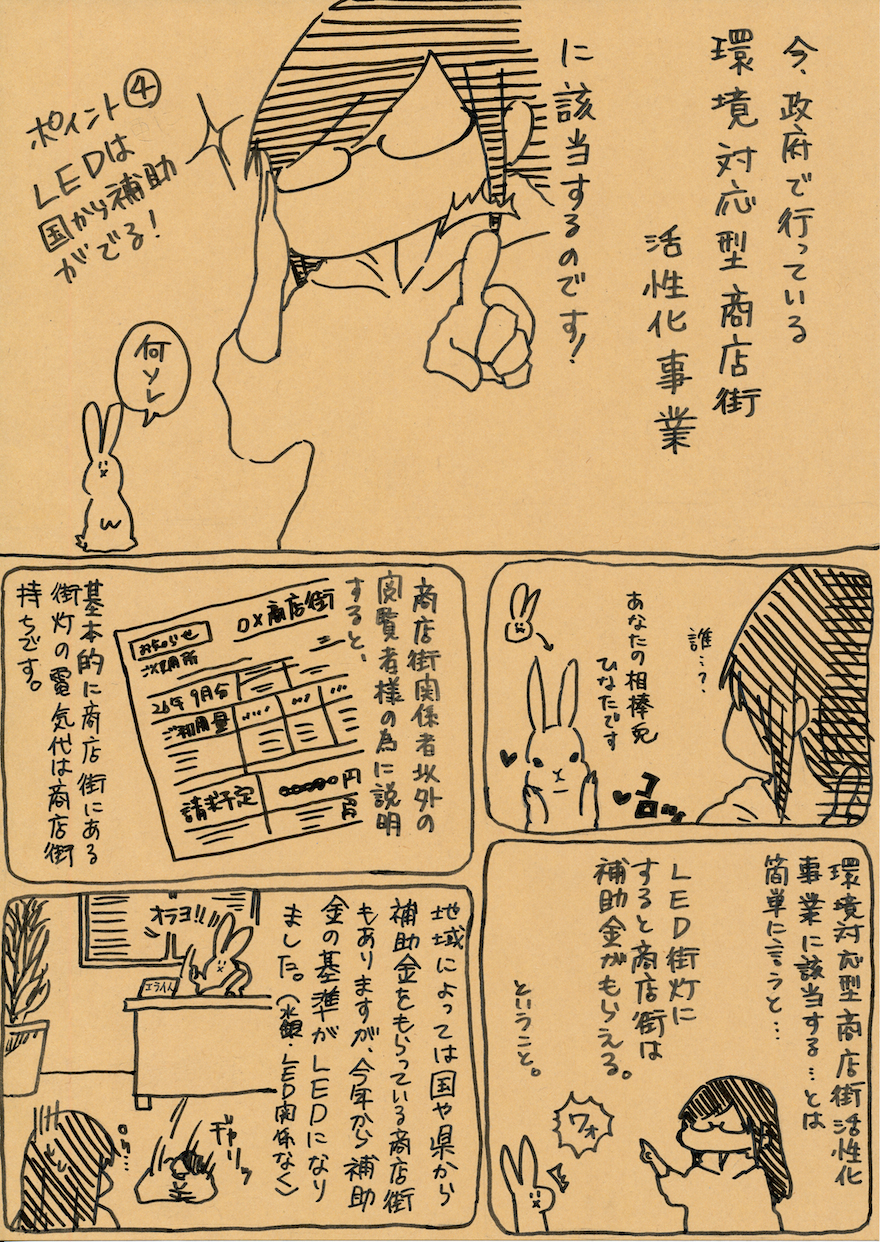 今、政府で行っている
環境対応型商店街
活性化事業
に該当するのです!
ポイント④
LEDは
国から補助
がでる!
何ソレ
誰…?
あなたの相棒兎
ひなたです
商店街関係者以外の
閲覧者様の為に説明
すると、
DX商店街
お知らせ
ご使用所
26年9月分
ご利用量
請求予定
円
基本的に商店街にある
街灯の電気代は商店街
持ちです。
環境対応型商店街活性化
事業に該当する…とは
簡単に言うと…
LED街灯に
すると商店街は
補助金がもらえる。
ということ。
ワォ
地域によっては国や県から
補助金をもらっている商店街
もありますが、今年から補助
金の基準がLEDになり
ました。(水銀・LED関係なく)
オラヨ!!
エライ人
ギャリッ